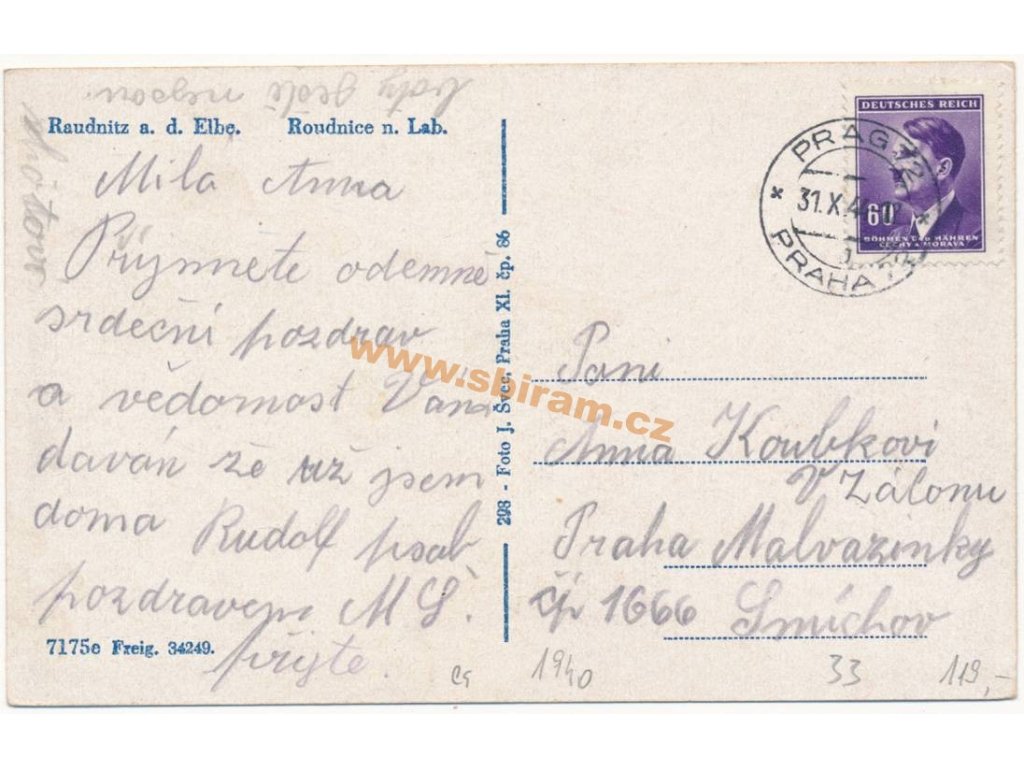 Raudnitz a. d. Elbe. Roudnice n. Lab.
Milá Anna
Přijmněte odemně
srdeční pozdrav
a vědomost Vám
daván že už jsem
doma Rudolf psal
pozdravem M Š.
přijte.
7175e Freig. 34249.
298 - Foto J. Švec, Praha XI. čp. 86
DEUTSCHES REICH
60
BÖHMEN UND MÄHREN
ČECHY A MORAVA
PRAG 72
31.X.4
PRAHA 72
Paní
Anna Koubkovi
V Zálonu
Praha Malvazinky
čp 1666 Smíchov
1940
33
119,-
www.sbiram.cz